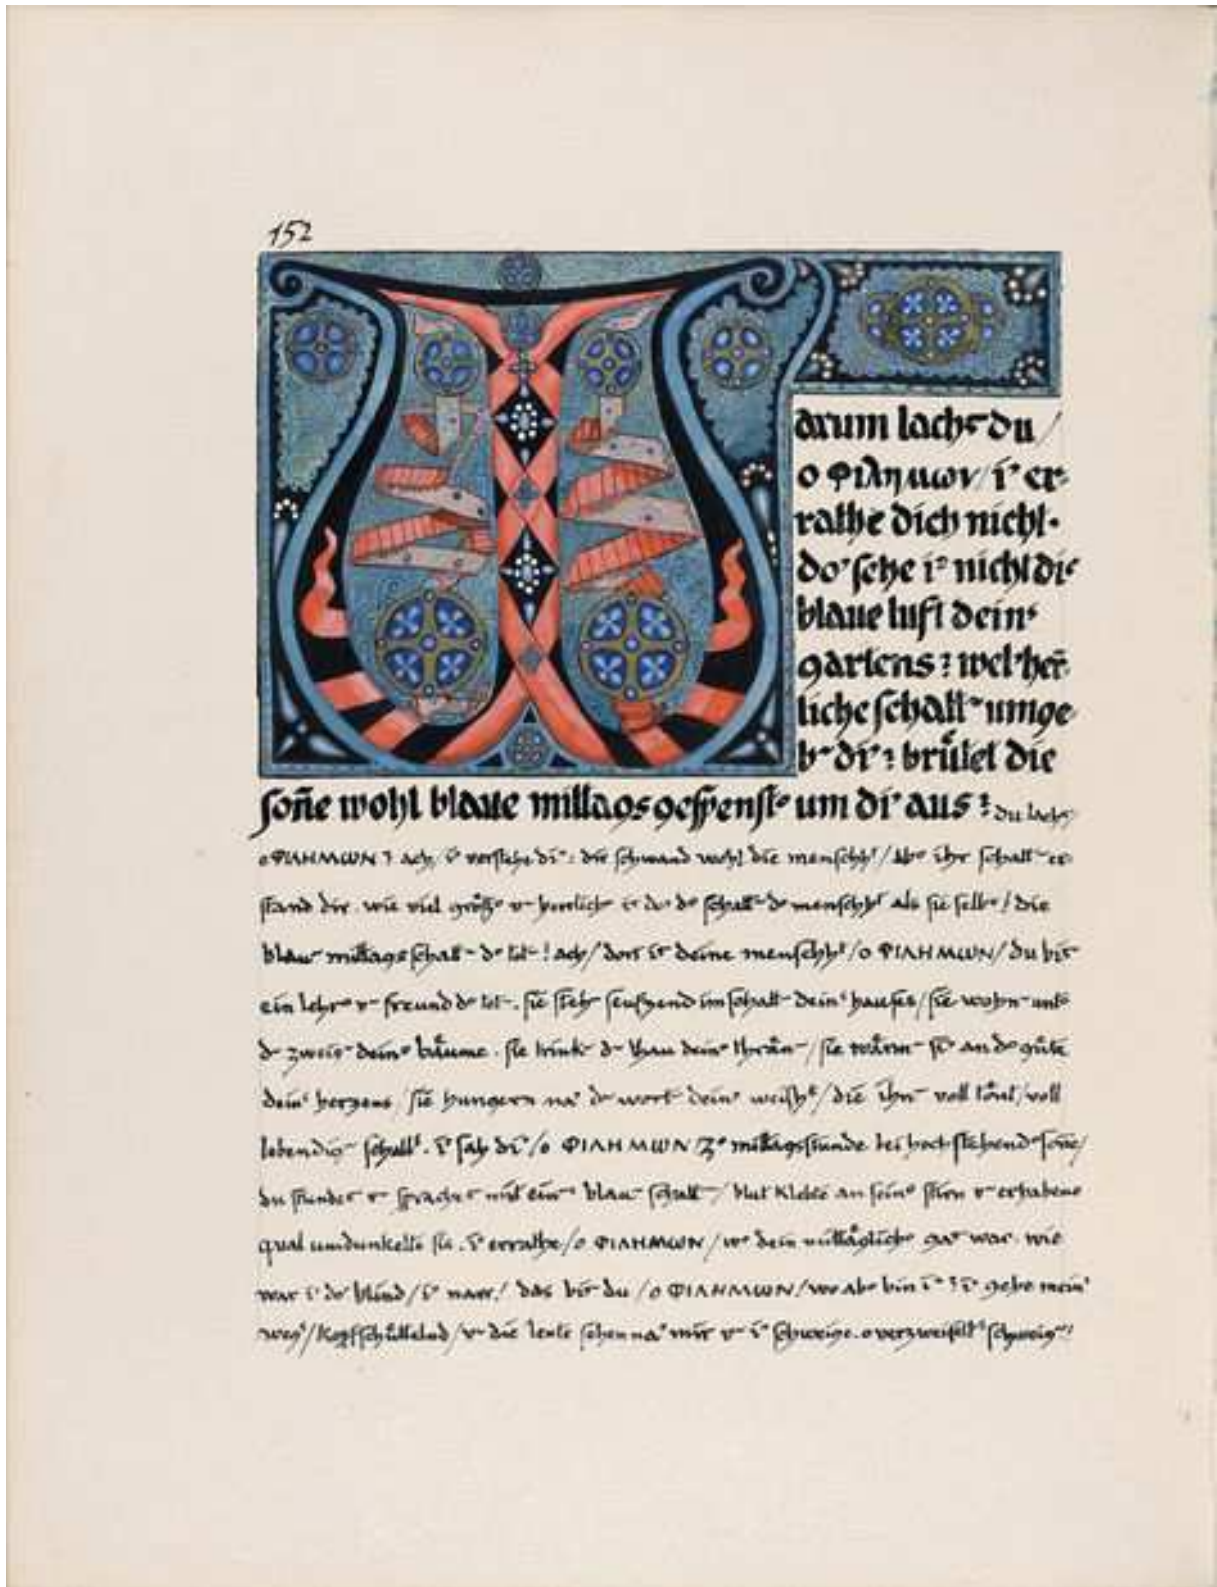 152
Warum lachst du /
o Φιλημων / i¯ er-
rathe dich nicht.
do¯ sehe i¯ nicht die
blaue luft deins
gartens? welche her̄-
liche schatt¯ umge
b¯ di¯? brütet die
son̄e wohl blaue mittagsgespenst¯ um di¯ aus? du lachst
o ΦΙΛΗΜΩΝ? ach / i¯ verstehe di¯: dir schwand wohl die menschht / ab¯ ihr schatt¯ er-
stand dir. wie viel größ¯ u¯ herrlich¯ is do¯ d¯ schatt¯ d¯ menschht als sie selb¯! die
blau¯ mittagsschatt¯ d¯ tot¯! ach / dort is deine menschht / o ΦΙΛΗΜΩΝ / du bis
ein lehr¯ u¯ freund d¯ tot¯. sie steh¯ seufzend im schatt¯ deins hauses / sie wohn¯ unt¯
d¯ zweig¯ dein¯ bäume. sie trink¯ d¯ thau dein¯ thrän¯ / sie wärm¯ si¯ an d¯ güte
deins herzens / sie hungern na¯ d¯ wort¯ dein¯ weisht / die ihn¯ voll tönt / voll
lebendig¯ schalls. i¯ sah di¯ / o ΦΙΛΗΜΩΝ / z¯ mittagsstunde bei hochstehend¯ son̄e /
du standes u¯ sprachs mit ein¯ blau¯ schatt¯ / blut klebte an sein¯ stirn u¯ erhabene
qual umdunkelte sie. i¯ errathe / o ΦΙΛΗΜΩΝ / w¯ dein mittäglich¯ gas war. wie
war i¯ do¯ blind / i¯ narr! das bis du / o ΦΙΛΗΜΩΝ / wo ab¯ bin i¯? i¯ gehe mein¯
wegs / kopfschüttelnd / u¯ die leute sehen na¯ mir u¯ i¯ schweige. o verzweifelts schweig¯!